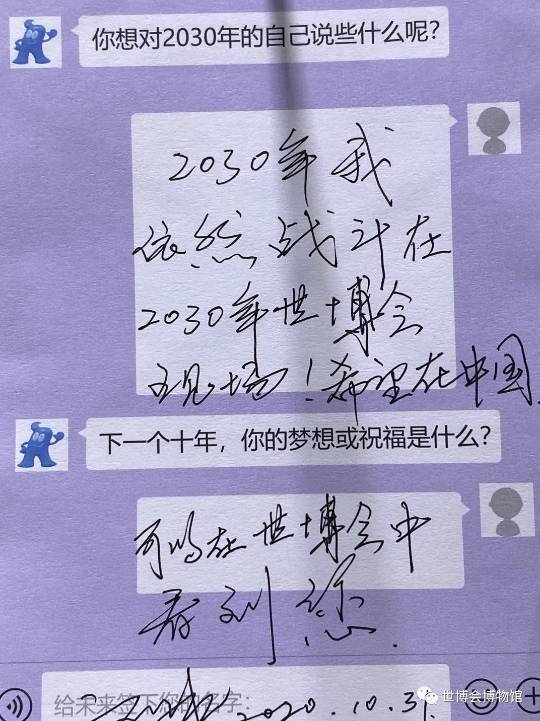 你想对2030年的自己说些什么呢？
2030年我
依然战斗在
2030年世博会
现场！希望在中国
下一个十年，你的梦想或祝福是什么？
可以在世博会中
看到您
给未来签下您的名字：
2020.10.31
世博会博物馆